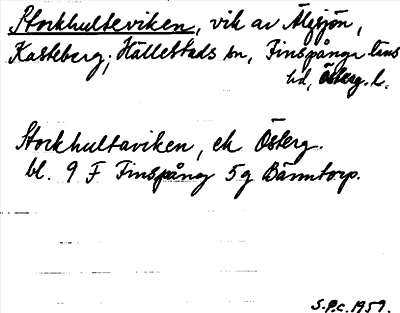 Stockhulteviken, vik av Älgsjön,
Kasteberg; Hällestads sn, Finspånga läns
hd, Österg. l.
Stockhultaviken, ek Österg.
bl. 9 F Finspång 5g Bänntorp.
S.P.C. 1959.